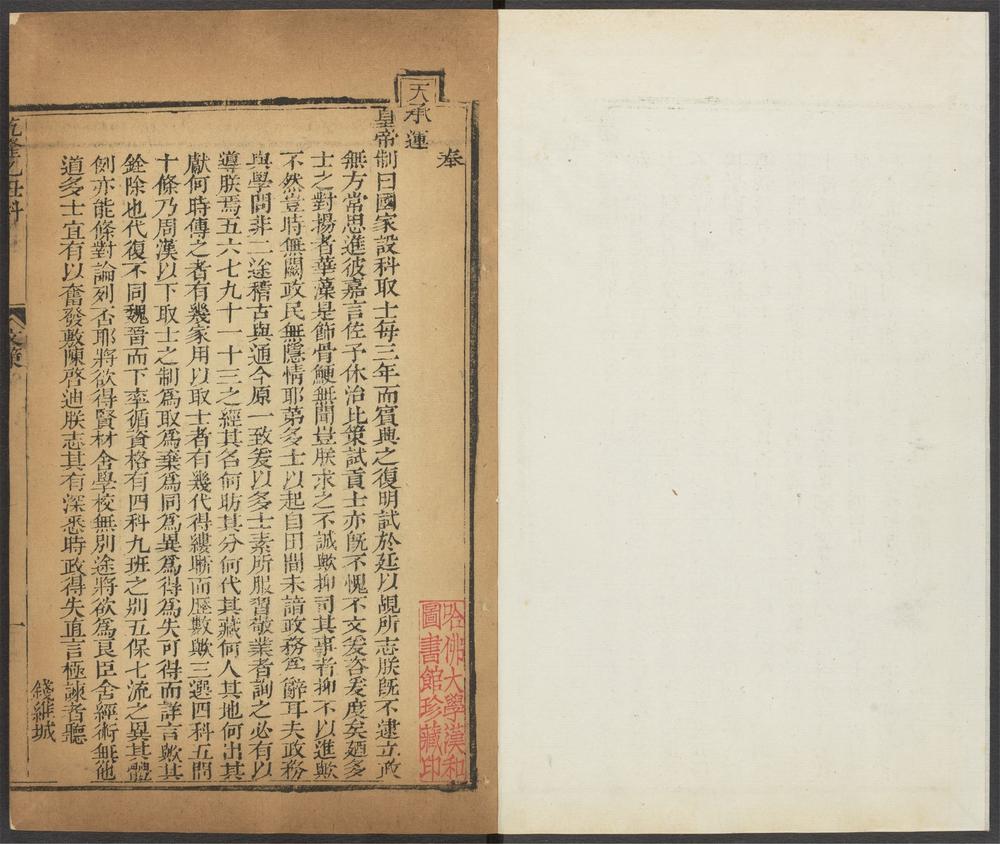 奉
天承運
皇帝制曰國家設科取士每三年而賓興之復明試於廷以覘所志朕旣不逮立政
無方常思進彼嘉言佐予休治比策試貢士亦旣不愧不文爰咨爰度矣廼多
士之對揚者華藻是飾骨鯁無聞豈朕求之不誠歟抑司其事者抑不以進歟
不然豈時無闕政民無隱情耶第多士以起自田間未諳政務爲辭耳夫政務
與學問非二途稽古與通今原一致爰以多士素所服習敬業者詢之必有以
導朕焉五六七九十一十三之經其名何昉其分何代其藏何人其地何出其
獻何時傳之者有幾家用以取士者有幾代得縷晰而歷數歟三選四科五問
十條乃周漢以下取士之制爲取爲棄爲同爲異爲得爲失可得而詳言歟其
銓除也代復不同魏晉而下率循資格有四科九班之別五保七流之異其體
例亦能條對論列否耶將欲得賢材舍學校無別途將欲爲良臣舍經術無他
道多士宜有以奮發敷陳啓迪朕志其有深悉時政得失直言極諫者聽
錢維城
乾隆乙丑科
文策
一
哈佛大學漢和
圖書館珍藏印